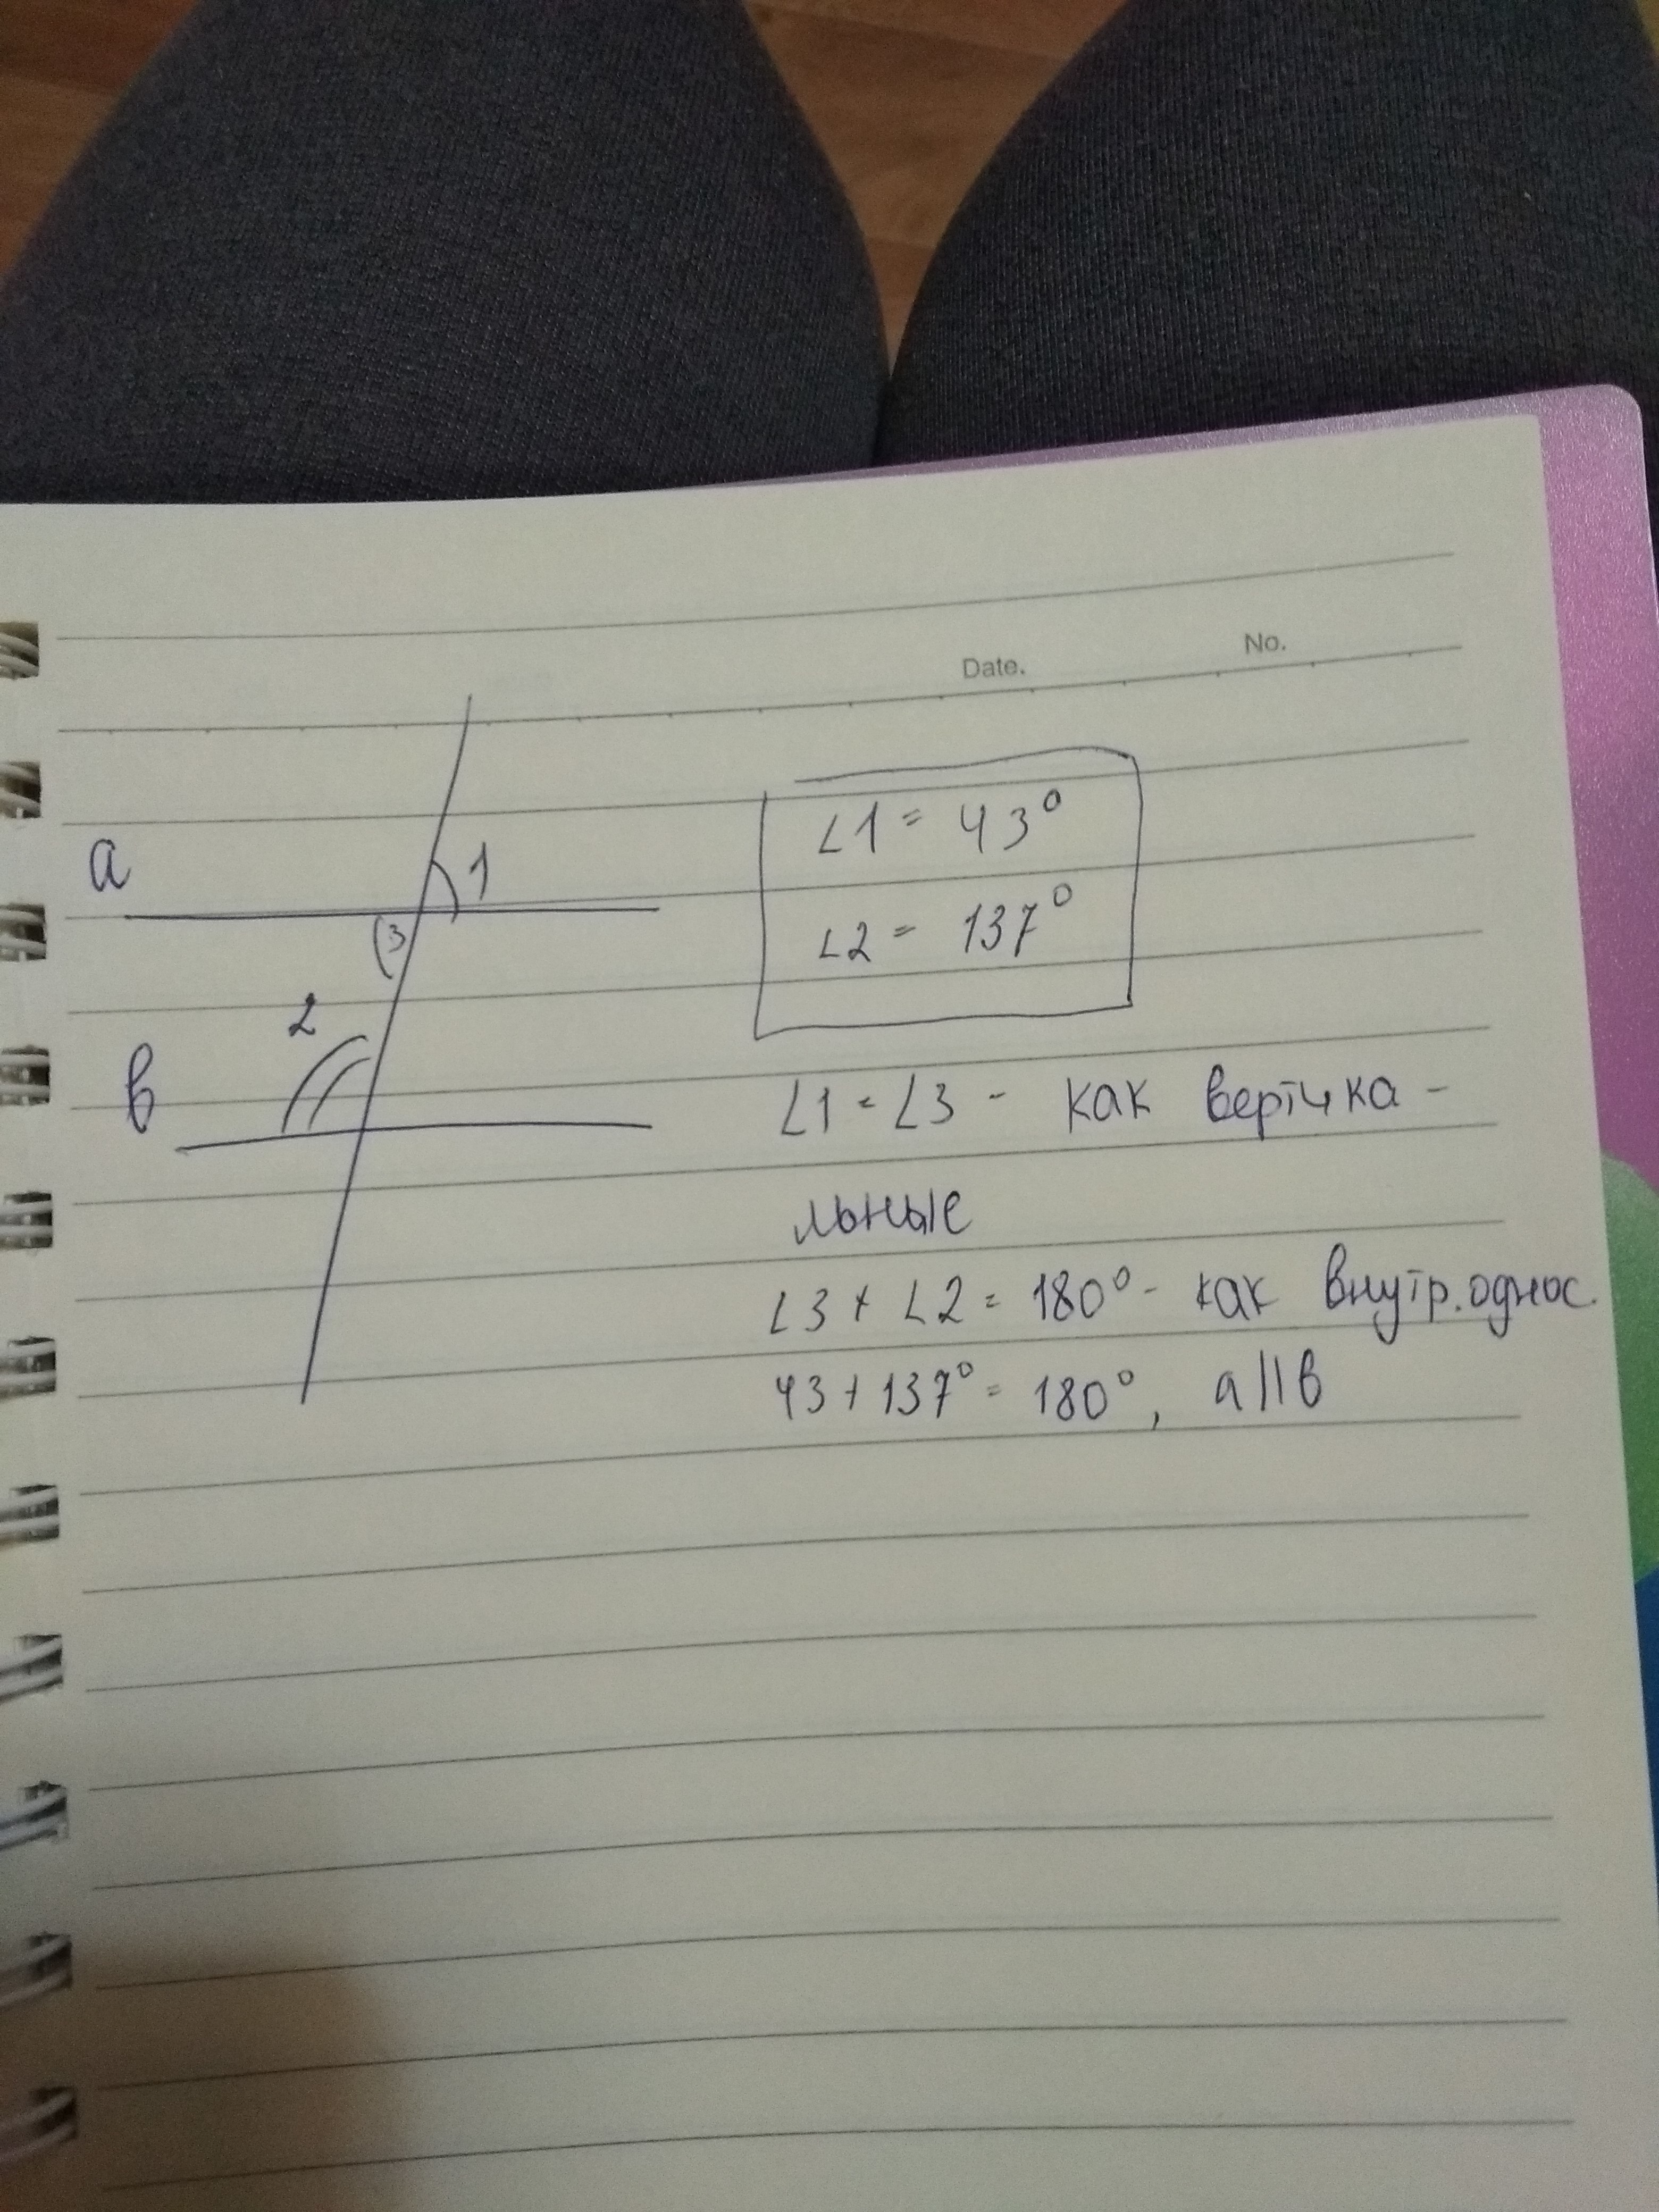 Date. No.
a
1
3
2
в
∠1 = 43°
∠2 = 137°
∠1 = ∠3 - как вертика-
льные
∠3 + ∠2 = 180° - как внутр. однос.
43 + 137° = 180°, a || в